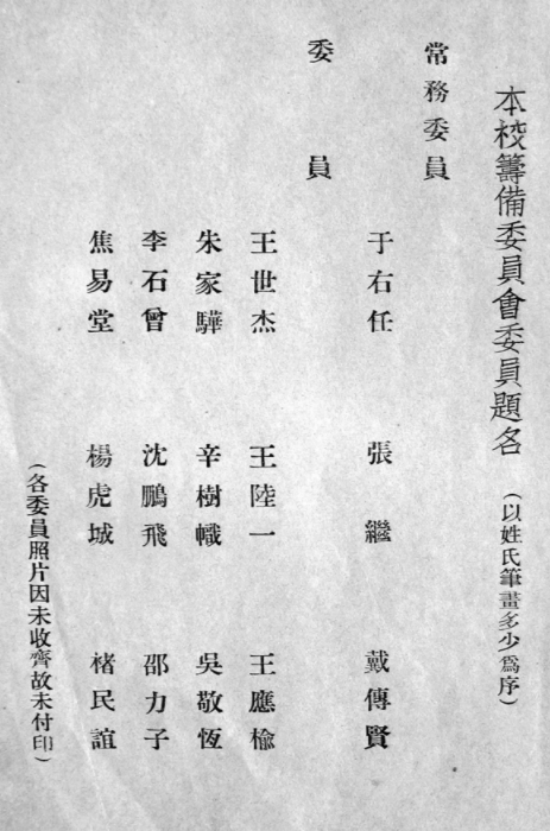 本校籌備委員會委員題名 (以姓氏筆畫多少爲序)
常務委員
于右任 張繼 戴傳賢
委員
王世杰 王陸一 王應楡
朱家驊 辛樹幟 吳敬恆
李石曾 沈鵬飛 邵力子
焦易堂 楊虎城 褚民誼
(各委員照片因未收齊故未付印)